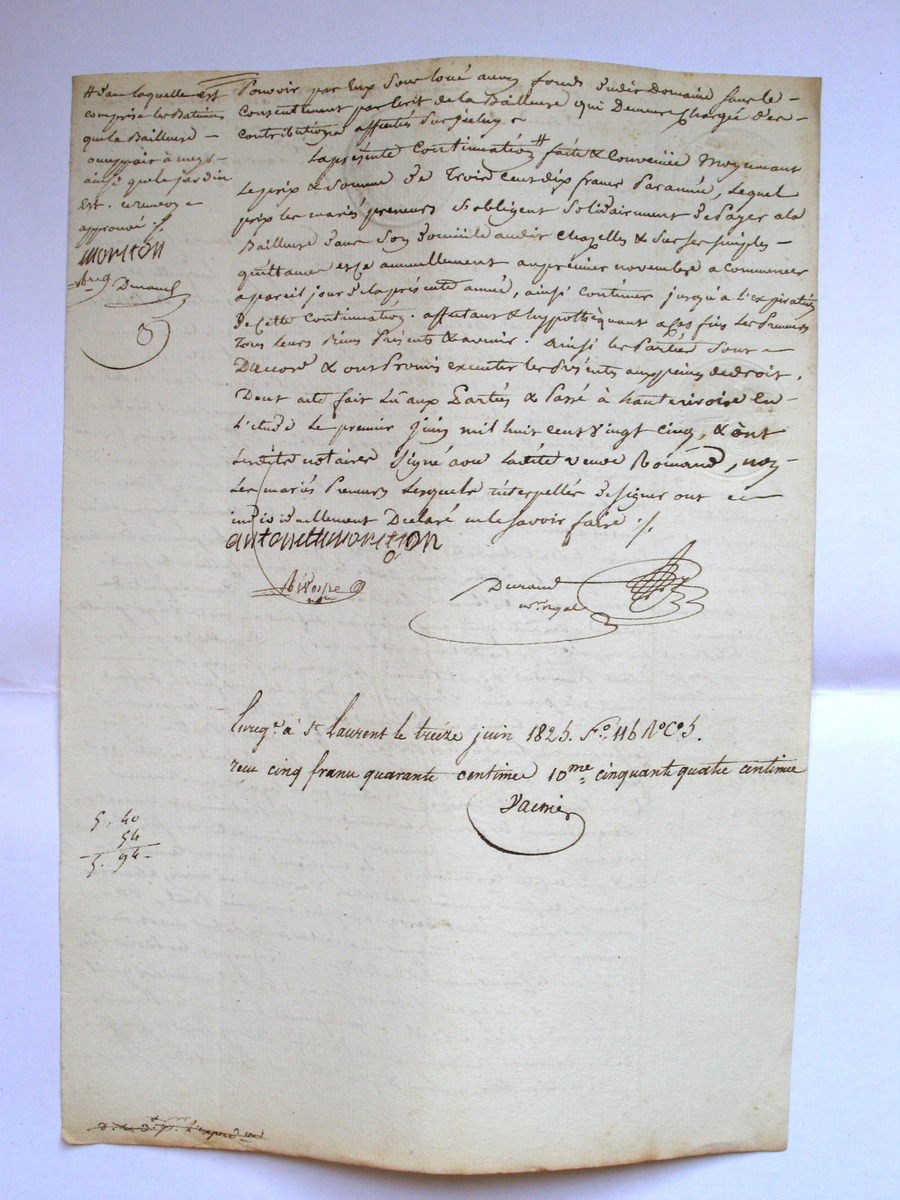 # dans laquelle est
comprise les Batimens
que la Bailleuse
ainsi que le jardin
est . ce renvoy
approuvé ./.
morcton
Durand
Pouvoir par Eux Sous loué aucun fonds dudit Domaine sans le
Consentement par Ecrit de la Bailleuse qui Demeure Chargée des
Contributions affectés Sur jceluy
La présente Continuation # faite & Convenüe Moyennant
Le prix & Somme de Trois Cent dix francs Par année, Lequel
prix les mariés preneurs S'obligent Solidairement de Payer a la
Bailleuse dans Son domicile audit Chazelles & Sur Ses simples
quittances et ce annuellement au premier novembre a Commencer
a pareil jour de la présente année, ainsi Continuer jusqu'a l'expiration
de Cette Continuation . affectant & hypothéquant a Ces fins Les Preneurs
Tous leurs Biens Présents & avenir . ainsi les Parties Sont
D'accord & ont Promis executer les Présents aux peines de droit .
Dont acte fait Lu aux Parties & Passé à hauterivoire En
L'etude Le premier juin mil huit cent Vingt Cinq, & ont
Lesdits notaires Signé avec La dite veuve , non
Les mariés Preneurs Lesquels interpellés de Signer ont
individuellement Declaré ne le Savoir faire ./.
Durand
nre royal
Enregé à St Laurent le treize juin 1825. Fo 116 Ro Ce 5.
recu cinq francs quarante centimes 10me cinquante quatre centimes
5, 40
54
5. 94